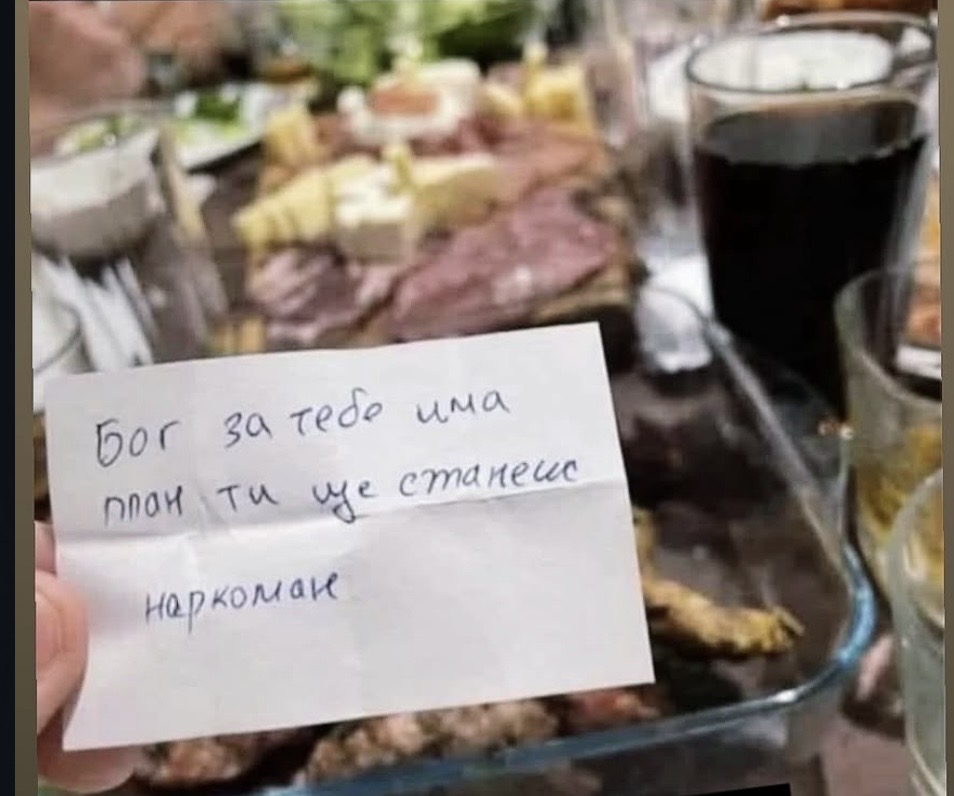 Бог за тебе има
план ти ще станеш
наркоман